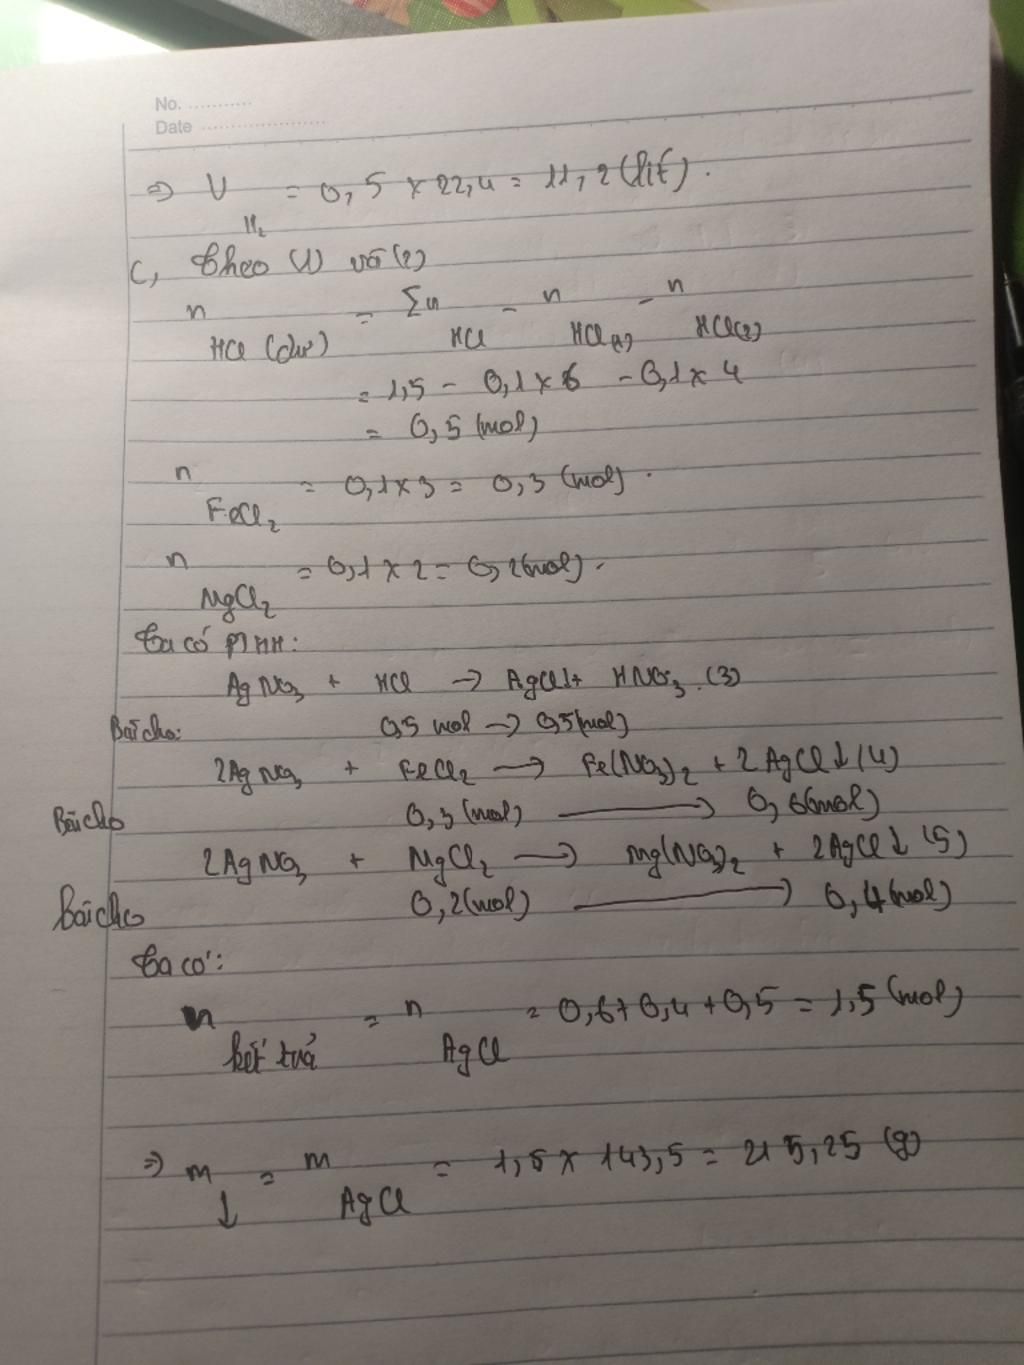 No. ...........
Date ......................
=> V H₂ = 0,5 x 22,4 = 11,2 (lít).
c, Theo (1) và (2)
n HCl (dư) = Σn HCl - n HCl(1) - n HCl(2)
= 1,5 - 0,1 x 6 - 0,1 x 4
= 0,5 (mol)
n FeCl₂ = 0,1 x 3 = 0,3 (mol).
n MgCl₂ = 0,1 x 2 = 0,2 (mol).
Ta có PTHH:
AgNO₃ + HCl → AgCl↓ + HNO₃ (3)
Bài cho: 0,5 mol → 0,5 (mol)
2AgNO₃ + FeCl₂ → Fe(NO₃)₂ + 2AgCl↓ (4)
Bài cho 0,3 (mol) → 0,6 (mol)
2AgNO₃ + MgCl₂ → Mg(NO₃)₂ + 2AgCl↓ (5)
Bài cho 0,2 (mol) → 0,4 (mol)
Ta có:
n kết tủa = n AgCl = 0,6 + 0,4 + 0,5 = 1,5 (mol)
=> m ↓ = m AgCl = 1,5 x 143,5 = 215,25 (g)